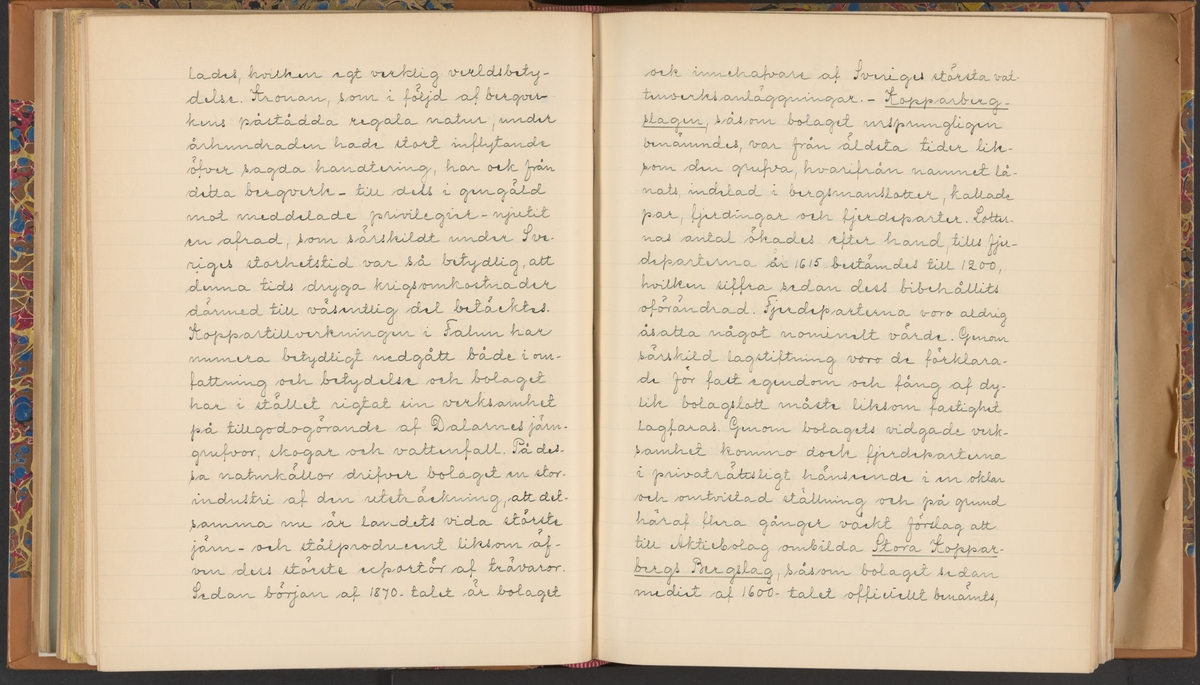 lades, hvilken egt verklig verldsbety-
delse. Kronan, som i följd af bergver-
kens påstådda regala natur, under
århundraden hade stort inflytande
öfver sagda handtering, har ock från
detta bergverk – till dels i gengäld
mot meddelade privilegier – njutit
en afrad, som särskildt under Sve-
riges storhetstid var så betydlig, att
denna tids dryga krigsomkostnader
därmed till väsentlig del betäcktes.
Koppartillverkningen i Falun har
numera betydligt nedgått både i om-
fattning och betydelse och bolaget
har i stället rigtat sin verksamhet
på tillgodogörande af Dalarnes järn-
grufvor, skogar och vattenfall. På des-
sa naturkällor drifver bolaget en stor-
industri af den utsträckning, att det-
samma nu är landets vida störste
järn- och stålproducent liksom äf-
ven dess störste exportör af trävaror.
Sedan början af 1870-talet är bolaget
ock innehafvare af Sveriges största vat-
tenverksanläggningar. – Kopparberg-
slagen, såsom bolaget ursprungligen
benämndes, var från äldsta tider lik-
som den grufva, hvarifrån namnet lå-
nats, indelad i bergsmanslotter, kallade
par, fjerdingar och fjerdeparter. Lotter-
nas antal ökades efter hand, tills fjer-
departerna år 1615 bestämdes till 1200,
hvilken siffra sedan dess bibehållits
oförändrad. Fjerdeparterna voro aldrig
åsatta något nominelt värde. Genom
särskild lagstiftning voro de förklara-
de för fast egendom och fång af dy-
lik bolagslott måste liksom fastighet
lagfaras. Genom bolagets vidgade verk-
samhet kommo dock fjerdeparterna
i privaträttsligt hänseende i en oklar
och omtvistad ställning och på grund
häraf flera gånger väckt förslag att
till Aktiebolag ombilda Stora Koppar-
bergs Bergslag, såsom bolaget sedan
mediet af 1600-talet officielt benämts,